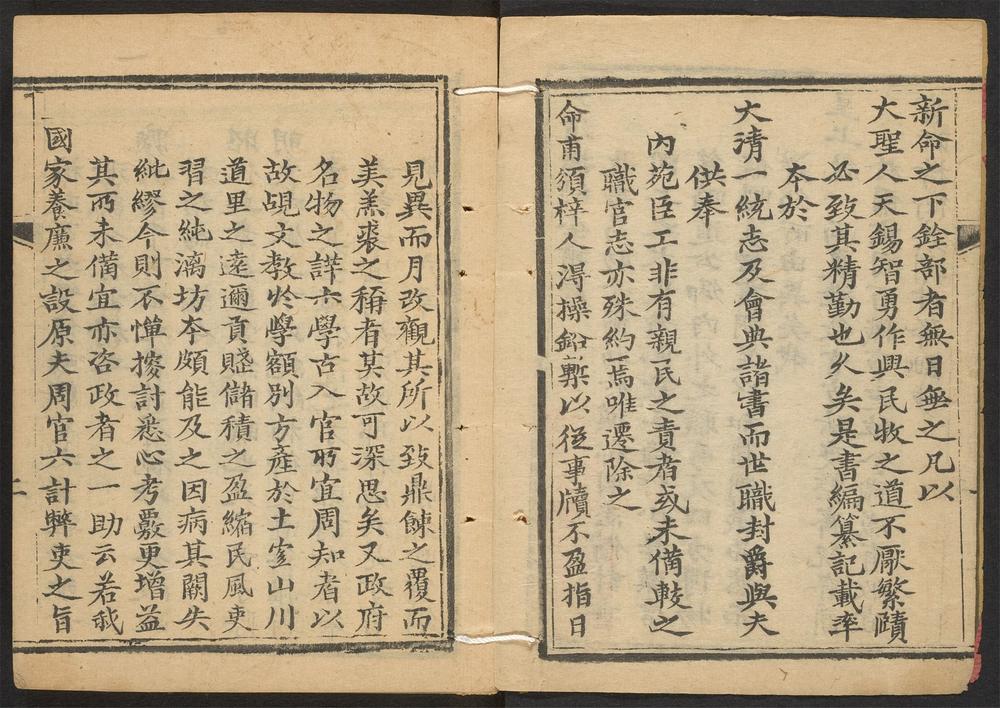 新命之下銓部者無日無之凡以
大聖人天錫智勇作興民牧之道不厭繁賾
必致其精勤也久矣是書編纂記載率
本於
大清一統志及會典諸書而世職封爵與夫
供奉
內苑臣工非有親民之責者或未備較之
職官志亦殊約焉唯遷除之
命甫頒梓人淂操鉛槧以從事牘不盈指日
見異而月改觀其所以致鼎餗之覆而
美羔裘之稱者其故可深思矣又政府
名物之譁六學古入官所宜周知者以
故覘文教扵學額別方產於土宜山川
道里之遠邇貢賤儲積之盈縮民風吏
習之純漓坊本頗能及之因病其闕失
紕繆今則不憚搜討悉心考覈更增益
其所未備宜亦咨政者之一助云若我
國家養廉之設原夫周官六計弊吏之旨
二